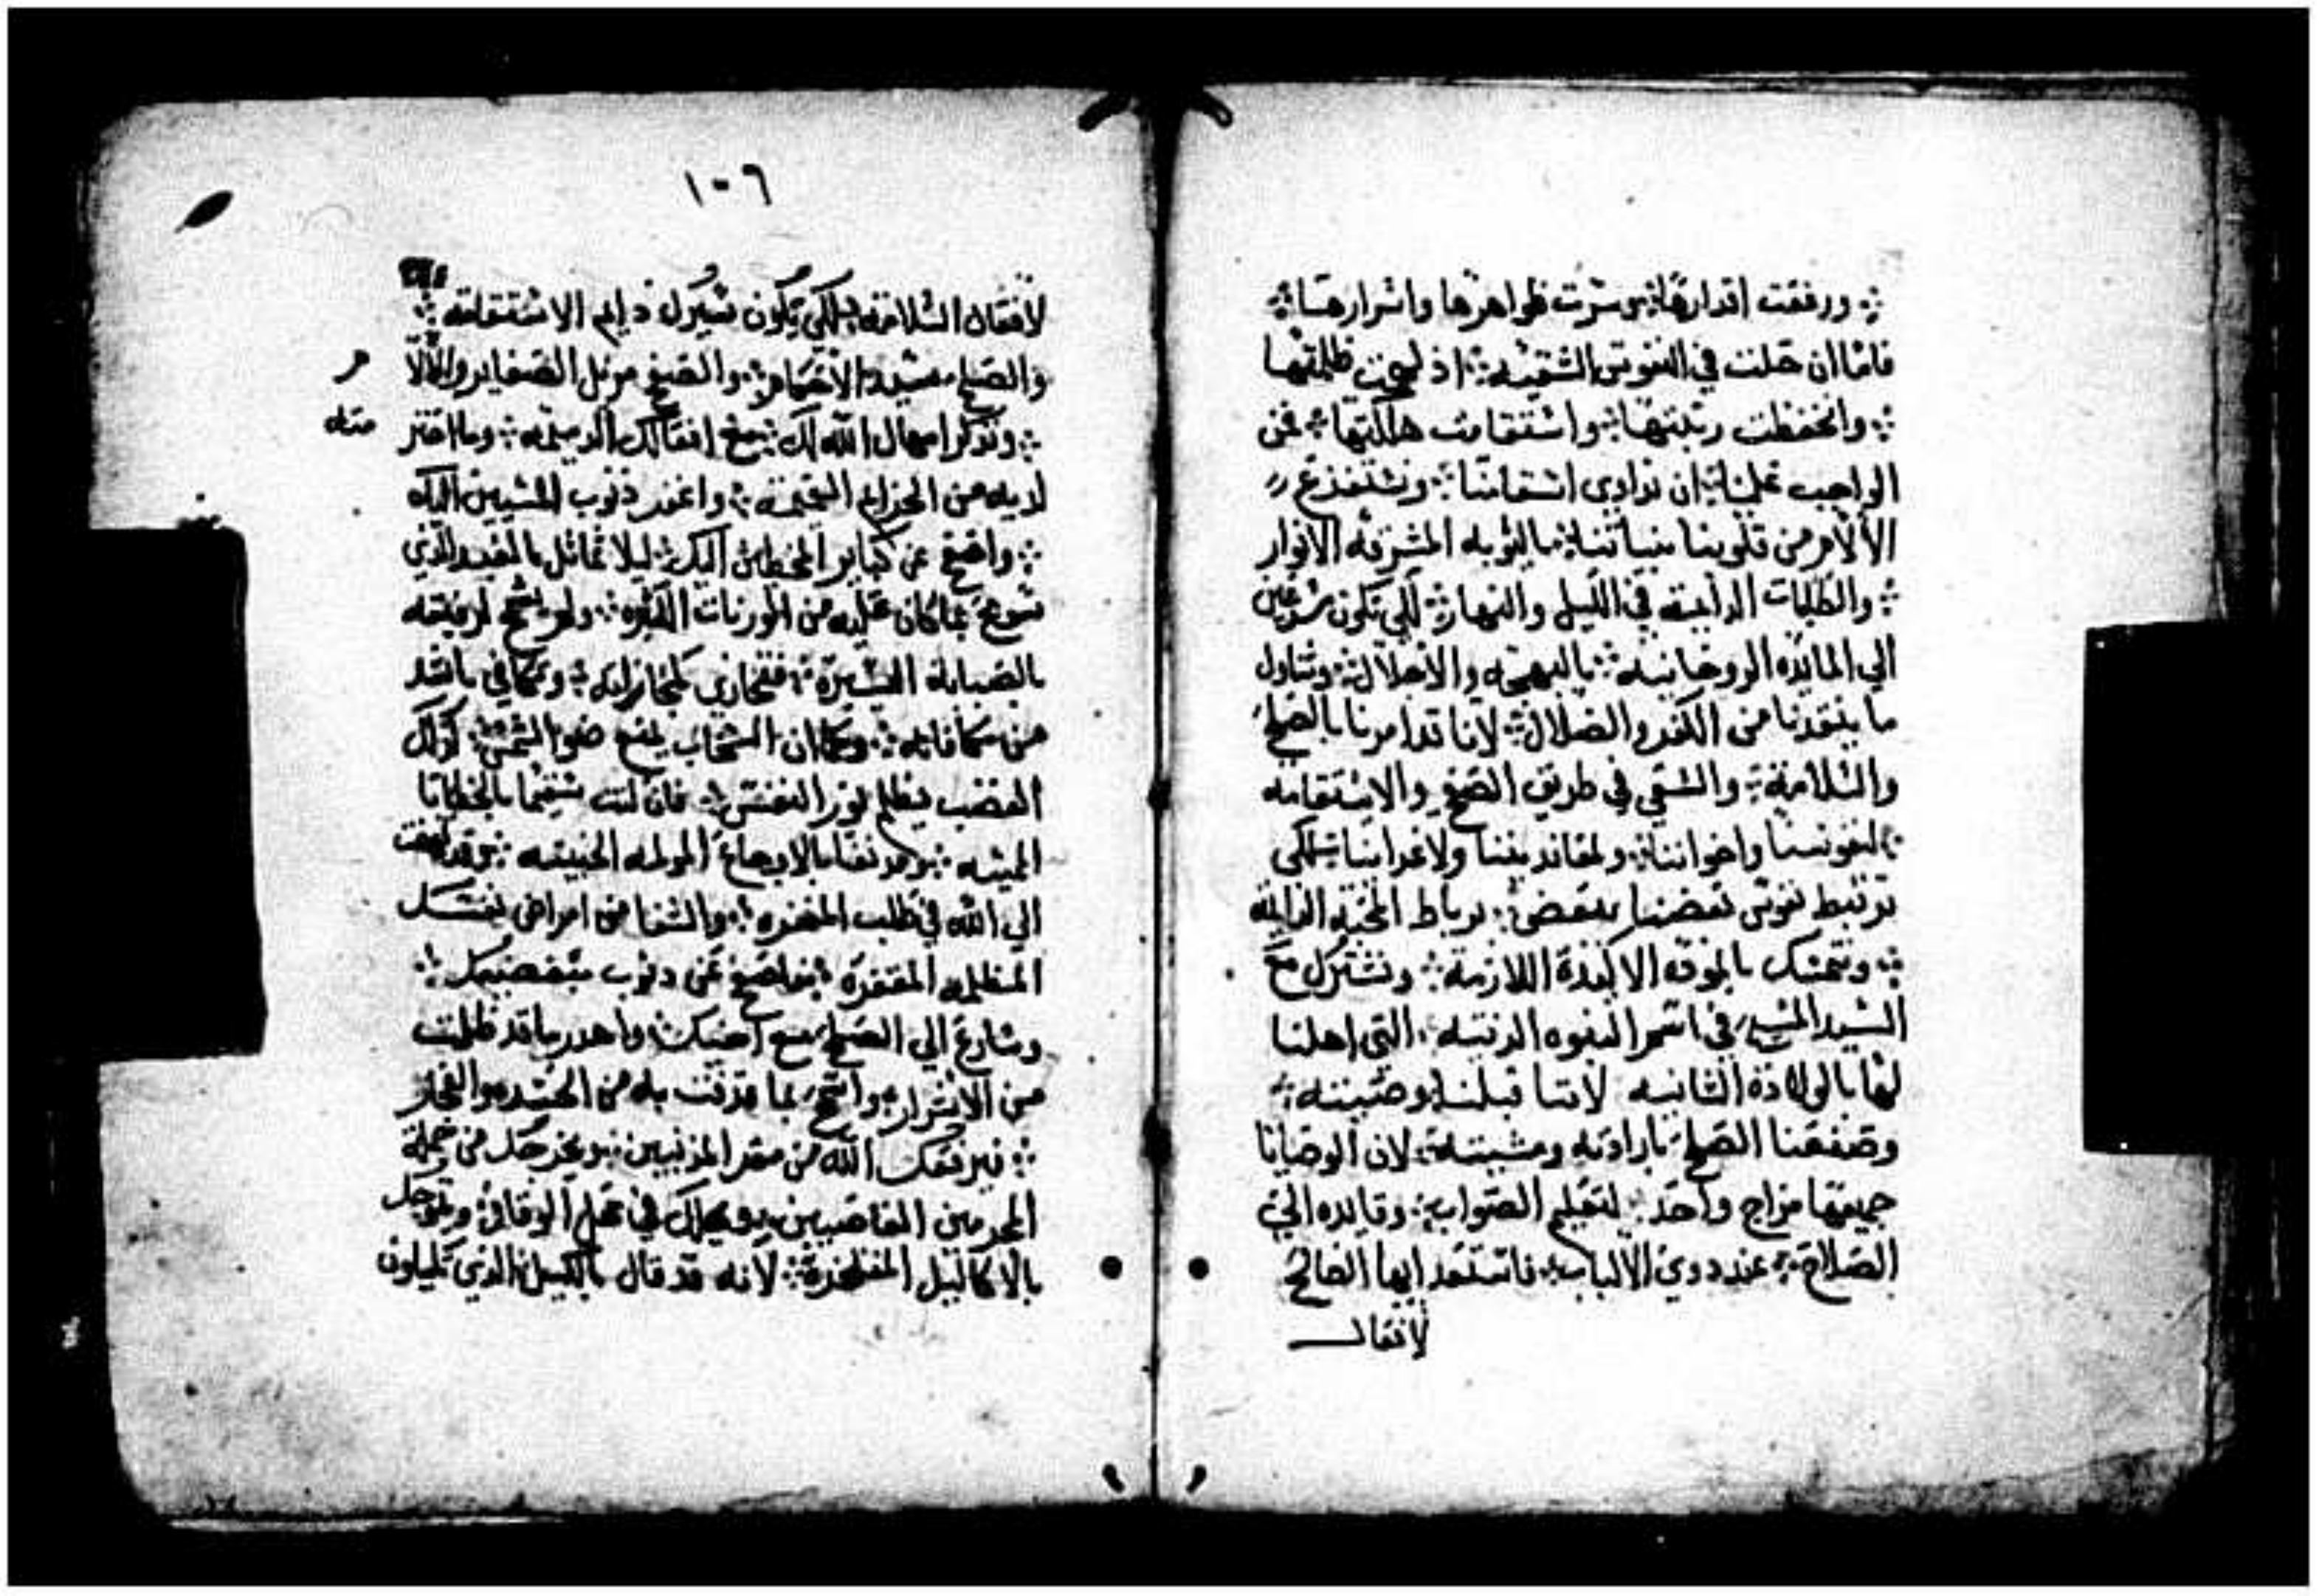 ورفعت اقدارها وسرت ظواهرها واسرارها
فاما ان حلت في النفوس الشقيه اذ لهجت ظلمتها
وانحفظت رتبتها واستقامت هالتها فمن
الواجب علينا ان نداوي اسقامنا ونستفزع
الالام من قلوبنا بنياتنا بالتوبه المشرقه الانوار
والطلبات الداعيه في الليل والنهار لكي نكون سرعين
الي المايده الروحانيه بالبهجه والاجلال ونتناول
ما ينقدنا من الكفر والضلال لاننا قد امرنا بالصلح
والسلامة والسعي في طريق الصفح والاستقامه
لنفوسنا واخواننا ولمعاندينا ولاعداينا لكي
ترتبط نفوس بعضنا ببعض برباط المحبة
ونتمسك بالموده الاكيدة اللازمة ونشترك مع
السيد المسيح في اسم البنوه الدنيه التي اهلنا
لها بالولادة الثانيه لاننا قبلنا وصيته
وصنعنا الصلح بارادته ومشيته لان الوصايا
جميعها مزاج واحد لتعليم الصواب وقايده الي
الصلاح عند دوي الالباب فاستعد ايها الصالح
لافعال
١٠٦
لافعال السلامه لكي يكون سيرك دايم الاستقامه
والصلح مشيد الاحكام والصفح مزيل الصغاير والالام
وتذكر امهال الله لك مع افعالك الدميمه وما اقتر
لديه من الجرايم العظيمه واغفر ذنوب المسيين اليك
واصفح عن كباير المخطين اليك ليلا تماثل بالعبد الذي
سومح بما كان عليه من الوزنات الكثيره ولم يسمح لرفيقه
بالصبابة اليسيرة فتجازي كمجازاته وتكافي باشد
من مكافاته وكما ان السحاب يمنع ضو الشمس كذلك
الغضب يظلم نور النفس فان كنت سقيما بالخطايا
المميته ومدنفا بالاوجاع المولمه الخبيثه وقد
الي الله في طلب المغفره والشفا من امراض نفسك
المظلمه المقفره فاصفح عن دنوب مبغضيك
وسارع الي الصلح مع اخيك واهدر ما قد ظلمت
من الاشرار واسمح بما قدفت به من الحسد والفجار
فيرفعك الله من مقر المذنبين ويخرجك من جملة
المجرمين الغاصبين ويحلك في محل الوقار ويتوجك
بالاكاليل المفاخرة لانه قد قال بالكيل الذي تكيلون